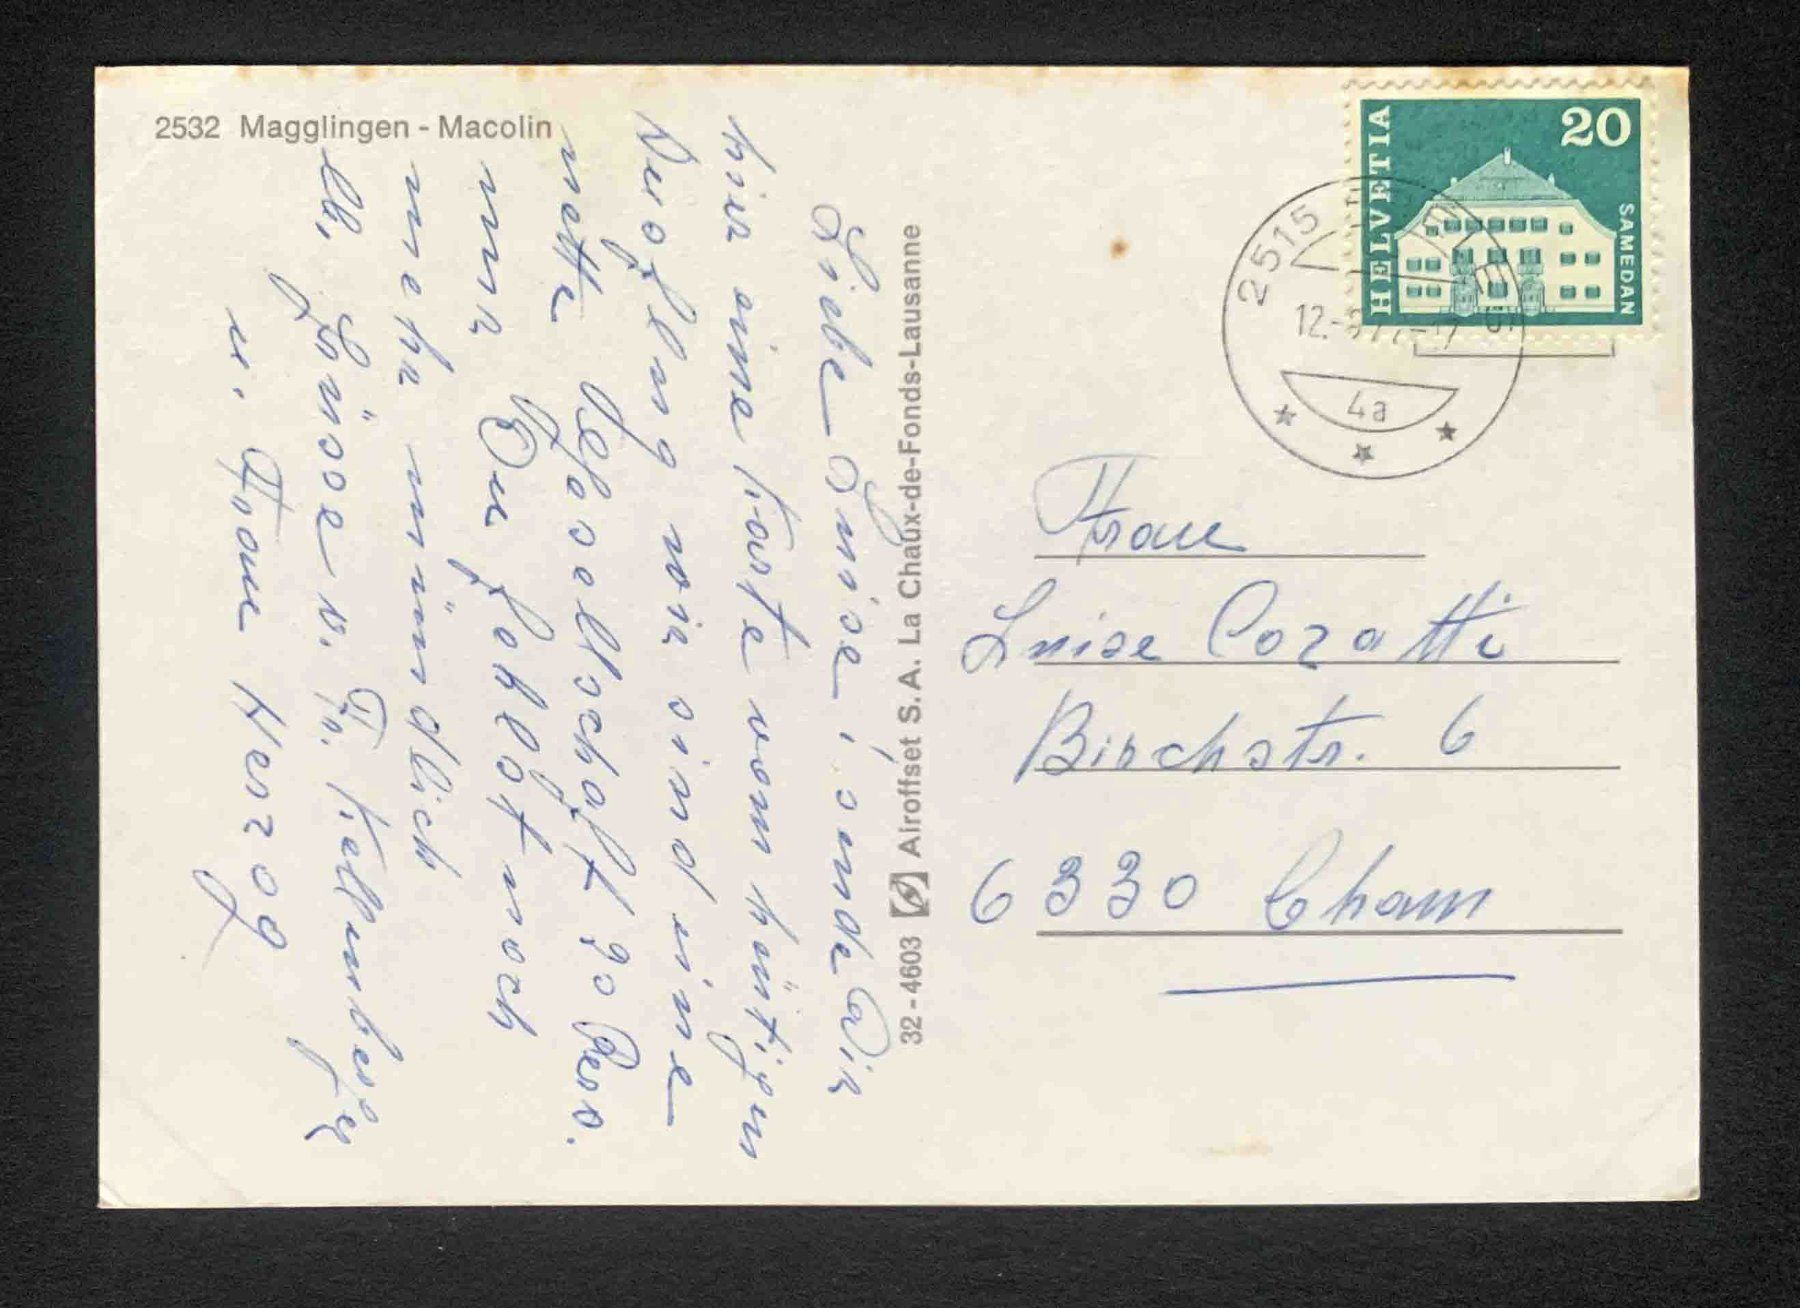 2532 Magglingen - Macolin
Liebe Luise, sende Dir
hier eine Karte vom heutigen
Ausflug wir sind eine
nette Gesellschaft 30 Pers.
nur Du fehlst noch
mehr mündlich
lb. Grüsse v. Fr. Kellenberger
u. Frau Herzog
32 - 4603 Airoffset S.A. La Chaux-de-Fonds-Lausanne
HELVETIA
20
SAMEDAN
2515
12.
4a
Frau
Luise Cozatti
Birchstr. 6
6330 Cham